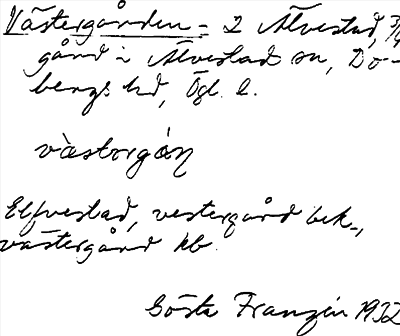 Västergården = 2 Älvestad,
gård i Älvestad sn, Bo-
bergs hd, Ögl. l.
västərgån
Elfvestad, vestergård bek.,
västergård kb.
Gösta Franzén 1932